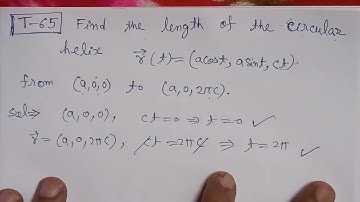 T-65 Find the length of the circular
helix r⃗(t) = (a cost, a sint, ct).
from (a,0,0) to (a,0,2πc).
sol⇒ (a,0,0), ct=0 ⇒ t=0 ✓
r⃗ = (a,0,2πc), ct=2πc ⇒ t=2π ✓